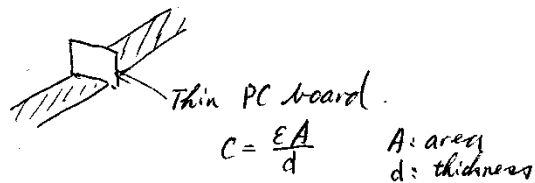 Thin PC board.
C = εA/d
A: area
d: thickness